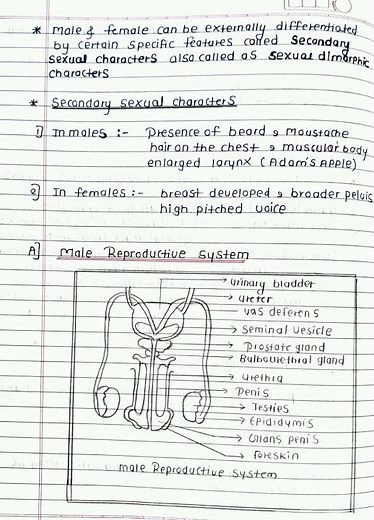 * Male & female can be externally differentiated
by certain specific features called Secondary
sexual characters also called as sexual dimorphic
characters
* Secondary sexual characters
1) In males :- Presence of beard, moustache
hair on the chest, muscular body
enlarged larynx (Adam's Apple)
2) In females :- breast developed, broader pelvis,
high pitched voice
A] Male Reproductive System
urinary bladder
ureter
vas deferens
Seminal vesicle
Prostate gland
Bulbourethral gland
urethra
Penis
Testies
Epididymis
Glans penis
foreskin
male Reproductive System